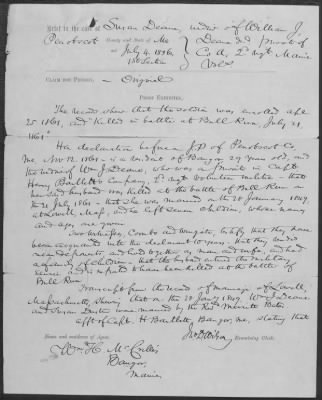 Brief in the case of Susan Deane, widow of William J.
Penobscot County and State of Me Deane dec'd private of
Act July 4. 1836. Co. A, 2nd Regt Maine
1st Section Vols
CLAIM FOR PENSION. — Original
PROOF EXHIBITED.
The record show that the soldier was enrolled
25 1861, and killed in battle at Bull Run, July 21,
1861
Her declaration before a J.P. of Penobscot Co
Me, Nov 12. 1861 – is a resident of Bangor 29 years old, and
the widow of Wm J. Deane, who was a private in Capt
Henry Bartlett's Company, 2nd Regt Volunteer militia – that
her said husband was killed at the battle of Bull Run on
21 July 1861 – that she was married on the 28 January 1849
at Lowell Mass, and he left seven children, whose names
and ages are given
Two witnesses, Combs and Wingate, testify that they have
been acquainted with the declarant years, that they resided
near deceased, and lived together as man and wife, and had
a family of children, that the husband entered the military
service and is reputed to have been killed at the battle of
Bull Run
Transcript from the record of marriage of Lowell,
Massachusetts, showing that on the 28 Jany 1849, Wm J Deane
and Susan were married by the Revd
afft of Capt. H Bartlett, Bangor, me, stating that
Examining Clerk.
Name and residence of Agent.
Wm. H. McCrillis
Bangor,
Maine.